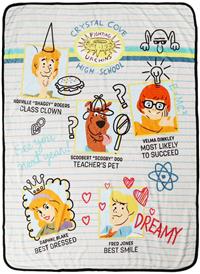 CRYSTAL COVE
FIGHTING
URCHINS
HIGH SCHOOL
NORVILLE "SHAGGY" ROGERS
CLASS CLOWN
VELMA DINKLEY
MOST LIKELY
TO SUCCEED
See you
next year!
SCOOBERT "SCOOBY" DOO
TEACHER'S PET
DAPHNE BLAKE
BEST DRESSED
FRED JONES
BEST SMILE
DREAMY